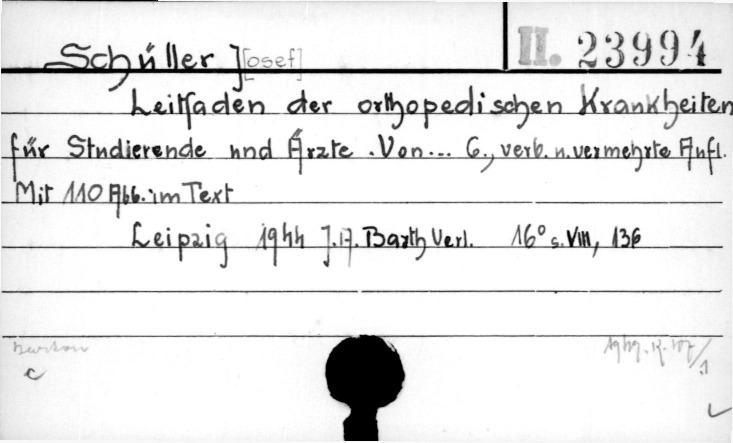 II. 23994
Schüller J[osef]
Leitfaden der orthopedischen Krankheiten
für Studierende und Ärzte. Von... 6., verb. u. vermehrte Aufl.
Mit 110 Abb. im Text
Leipzig 1944 J. A. Barth Verl. 16° s. VIII, 136
c